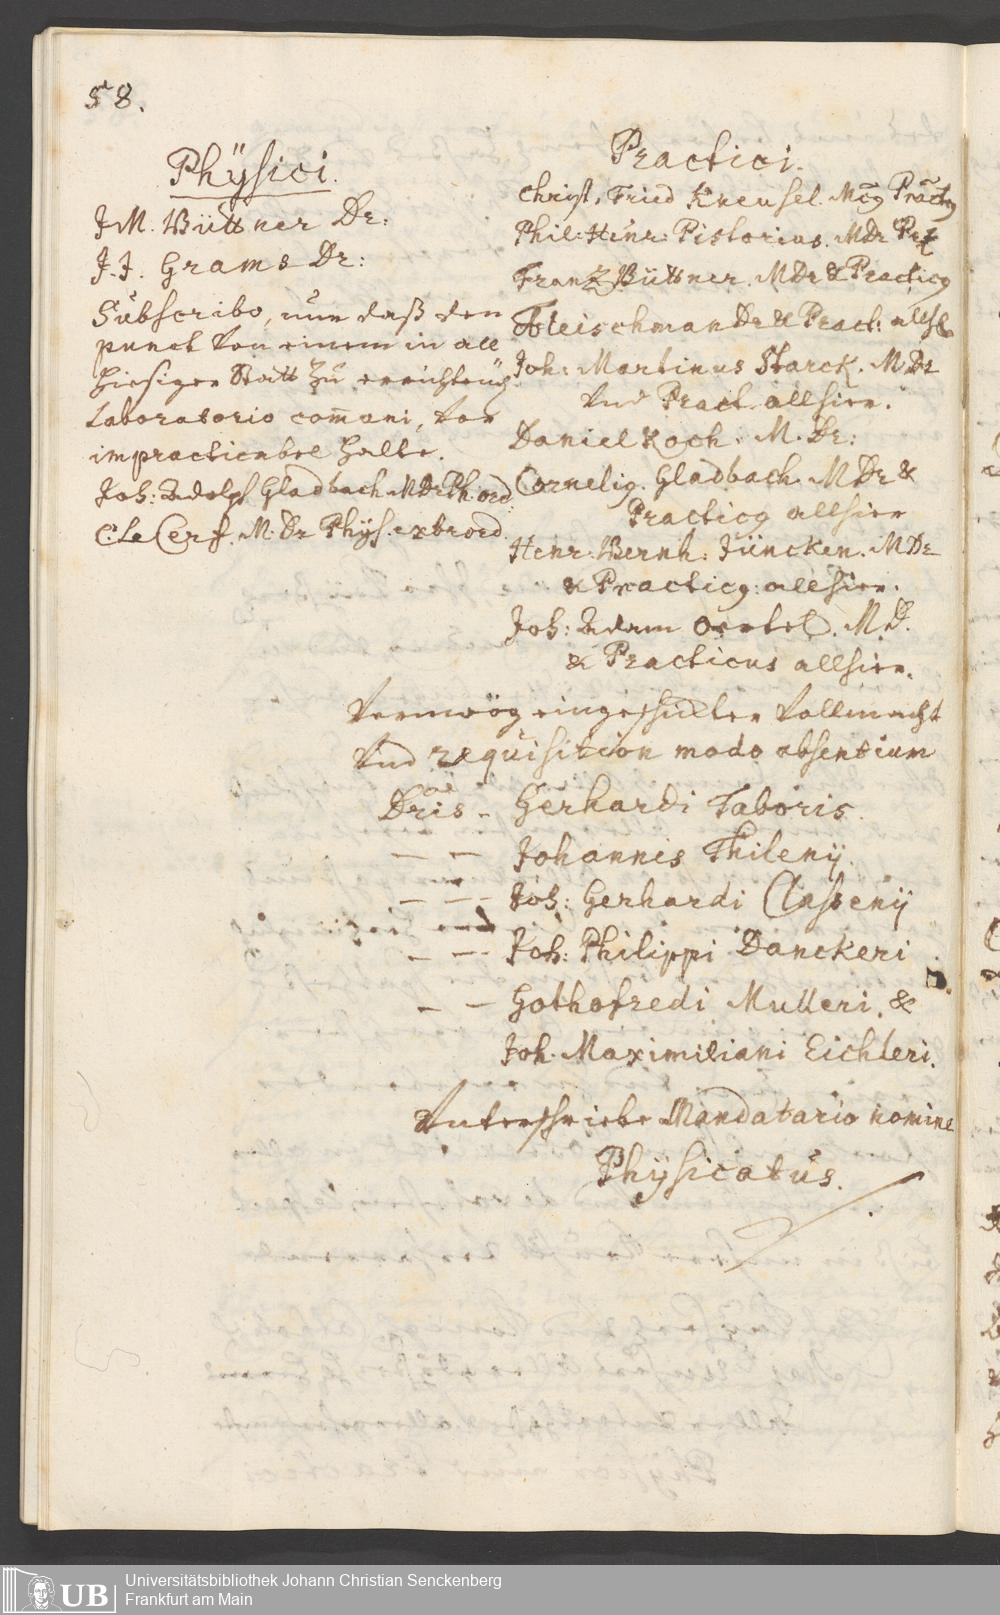 58.
Phÿsici.
J M. Büttner Dr:
J. J. Grams Dr:
Subscribo, nur daß den
punct von einem in all
hiesiger Statt zu
Laboratorio com̄uni, vor
impracticabel halte.
Joh: Adolph Gladbach MDr Ph: ord:
C. Le Cerf. M. Dr Phÿs. extraord.
Practici.
Christ. Fried Kneusel.
Phil: Henr: Pistorius. MDr
Franz Büttner. MDr & Practicq
Fleischman Dr & Pract: allh
Joh: Martinus Starck. M Dr
Und Pract. allhier.
Daniel Koch. M. Dr:
Cornelig. Gladbach. M Dr &
Practicq allhier
Henr: Bernh: Jüncken. M Dr
& Practicq: allhier.
Joh: Adam Oertel. M. D.
& Practicus allhier.
Vermög eingeschickter Vollmacht
Und requisition modo absentium
Dris - Gerhardi Taboris.
— — Johannis Thilenij.
— — - Joh: Gerhardi Classenij
— — Joh: Philippi Danckeri
— — Gothofredi Mulleri, &
Joh. Maximiliani Eichleri.
Unterschriebe Mandatario nomine
Phÿsicatus.
UB
Universitätsbibliothek Johann Christian Senckenberg
Frankfurt am Main